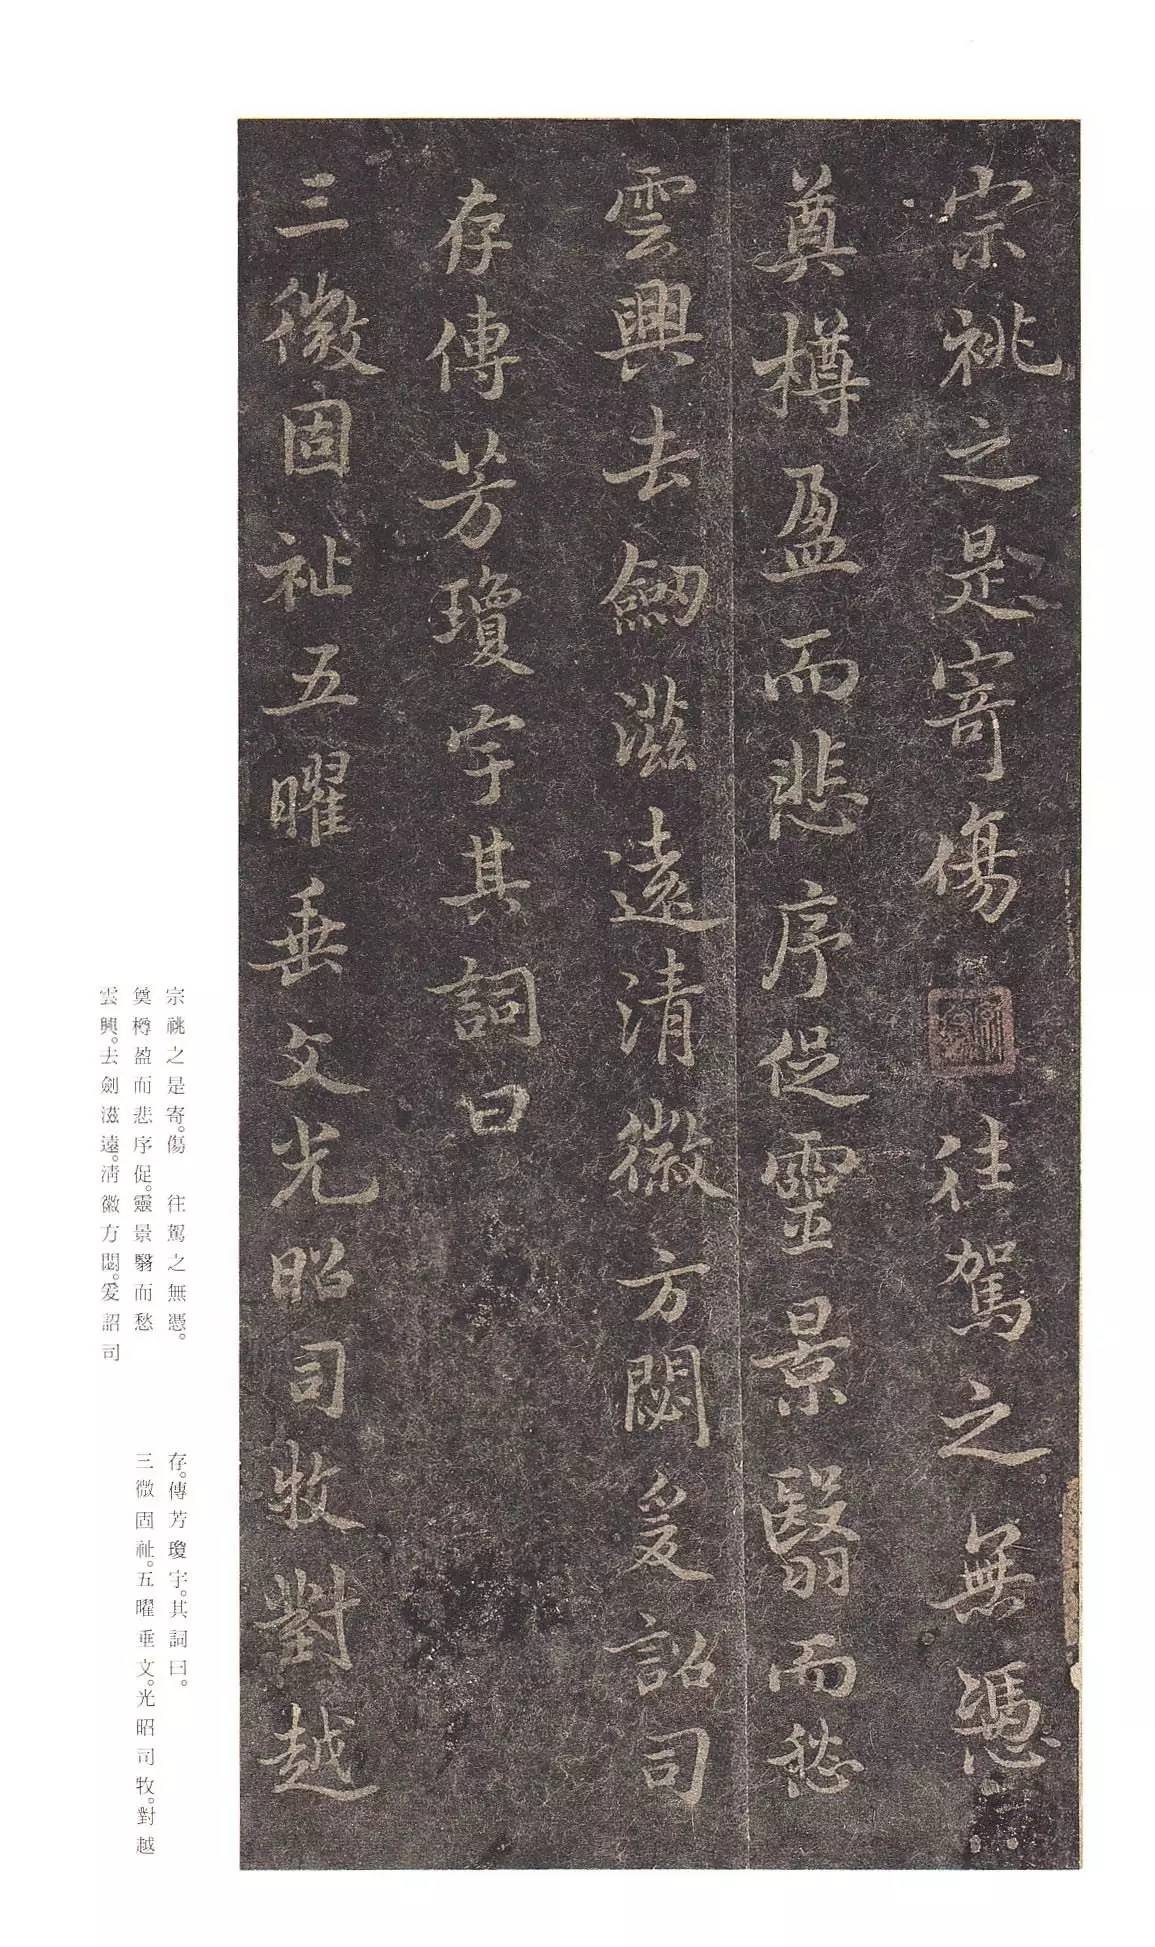 宗祧之是寄傷往駕之無憑
奠樽盈而悲序促靈景翳而愁
雲興去劒滋遠清徽方閟爰詔司
存傳芳瓊宇其詞曰
三微固祉五曜垂文光昭司牧對越
宗祧之是寄。傷　往駕之無憑。
奠樽盈而悲序促。靈景翳而愁
雲興。去劍滋遠。清徽方閟。爰詔司
存。傳芳瓊宇。其詞曰。
三微固祉。五曜垂文。光昭司牧。對越